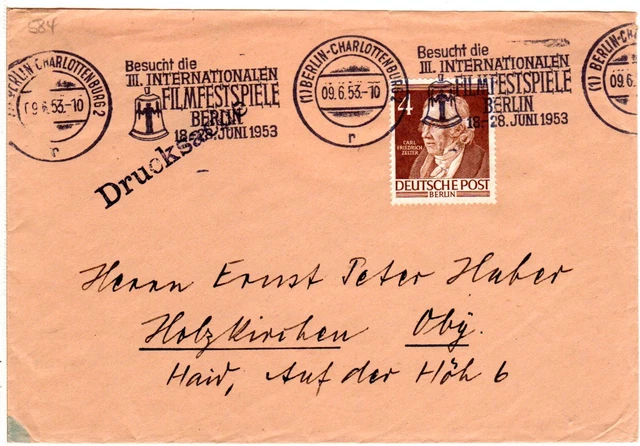 584
(1) BERLIN-CHARLOTTENBURG 2
09.6.53.-10
r
Besucht die
III. INTERNATIONALEN
FILMFESTSPIELE
BERLIN
18.-28. JUNI 1953
(1) BERLIN-CHARLOTTENBURG
09.6.53.-10
r
Besucht die
III. INTERNATIONALEN
FILMFESTSPIELE
BERLIN
18.-28. JUNI 1953
(1) BERLIN-CH
09.6
Drucksache
4
CARL
FRIEDRICH
ZELTER
DEUTSCHE POST
BERLIN
Herrn Ernst Peter Huber
Holzkirchen Oby.
Haid, Auf der Höh 6